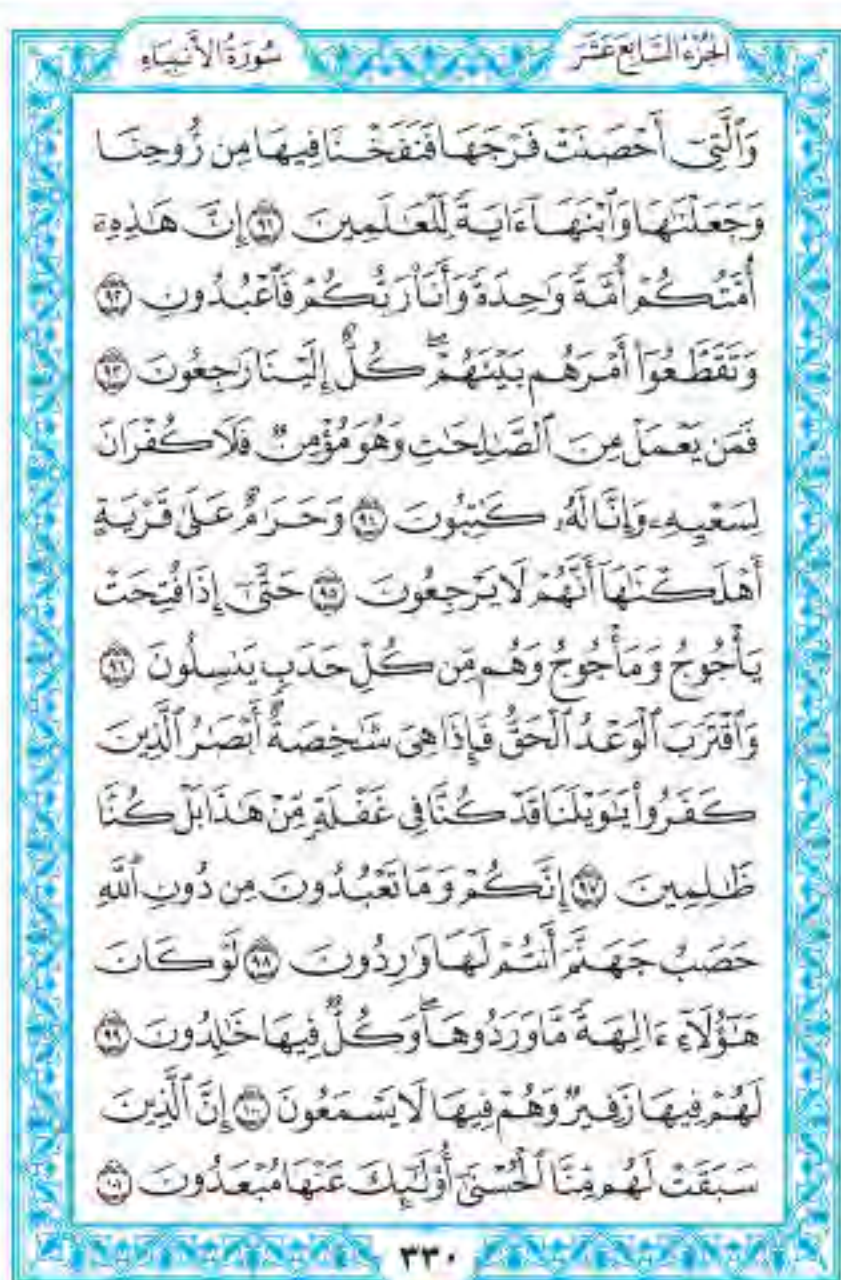 الجزء السابع عشر
سورة الأنبياء
وَٱلَّتِىٓ أَحْصَنَتْ فَرْجَهَا فَنَفَخْنَا فِيهَا مِن رُّوحِنَا
وَجَعَلْنَٰهَا وَٱبْنَهَآ ءَايَةً لِّلْعَٰلَمِينَ ٩١ إِنَّ هَٰذِهِۦٓ
أُمَّتُكُمْ أُمَّةً وَٰحِدَةً وَأَنَا۠ رَبُّكُمْ فَٱعْبُدُونِ ٩٢
وَتَقَطَّعُوٓا۟ أَمْرَهُم بَيْنَهُمْ ۖ كُلٌّ إِلَيْنَا رَٰجِعُونَ ٩٣
فَمَن يَعْمَلْ مِنَ ٱلصَّٰلِحَٰتِ وَهُوَ مُؤْمِنٌ فَلَا كُفْرَانَ
لِسَعْيِهِۦ وَإِنَّا لَهُۥ كَٰتِبُونَ ٩٤ وَحَرَٰمٌ عَلَىٰ قَرْيَةٍ
أَهْلَكْنَٰهَآ أَنَّهُمْ لَا يَرْجِعُونَ ٩٥ حَتَّىٰٓ إِذَا فُتِحَتْ
يَأْجُوجُ وَمَأْجُوجُ وَهُم مِّن كُلِّ حَدَبٍ يَنسِلُونَ ٩٦
وَٱقْتَرَبَ ٱلْوَعْدُ ٱلْحَقُّ فَإِذَا هِىَ شَٰخِصَةٌ أَبْصَٰرُ ٱلَّذِينَ
كَفَرُوا۟ يَٰوَيْلَنَا قَدْ كُنَّا فِى غَفْلَةٍ مِّنْ هَٰذَا بَلْ كُنَّا
ظَٰلِمِينَ ٩٧ إِنَّكُمْ وَمَا تَعْبُدُونَ مِن دُونِ ٱللَّهِ
حَصَبُ جَهَنَّمَ أَنتُمْ لَهَا وَٰرِدُونَ ٩٨ لَوْ كَانَ
هَٰٓؤُلَآءِ ءَالِهَةً مَّا وَرَدُوهَا ۖ وَكُلٌّ فِيهَا خَٰلِدُونَ ٩٩
لَهُمْ فِيهَا زَفِيرٌ وَهُمْ فِيهَا لَا يَسْمَعُونَ ١٠٠ إِنَّ ٱلَّذِينَ
سَبَقَتْ لَهُم مِّنَّا ٱلْحُسْنَىٰٓ أُو۟لَٰٓئِكَ عَنْهَا مُبْعَدُونَ ١٠١
٣٣٠